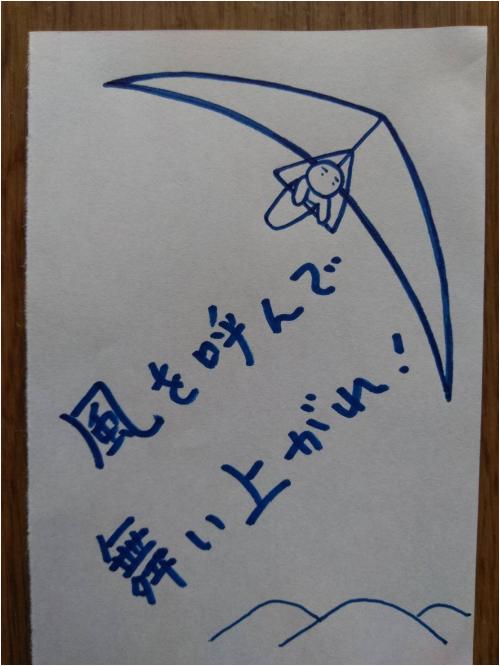 風を呼んで
舞い上がれ!